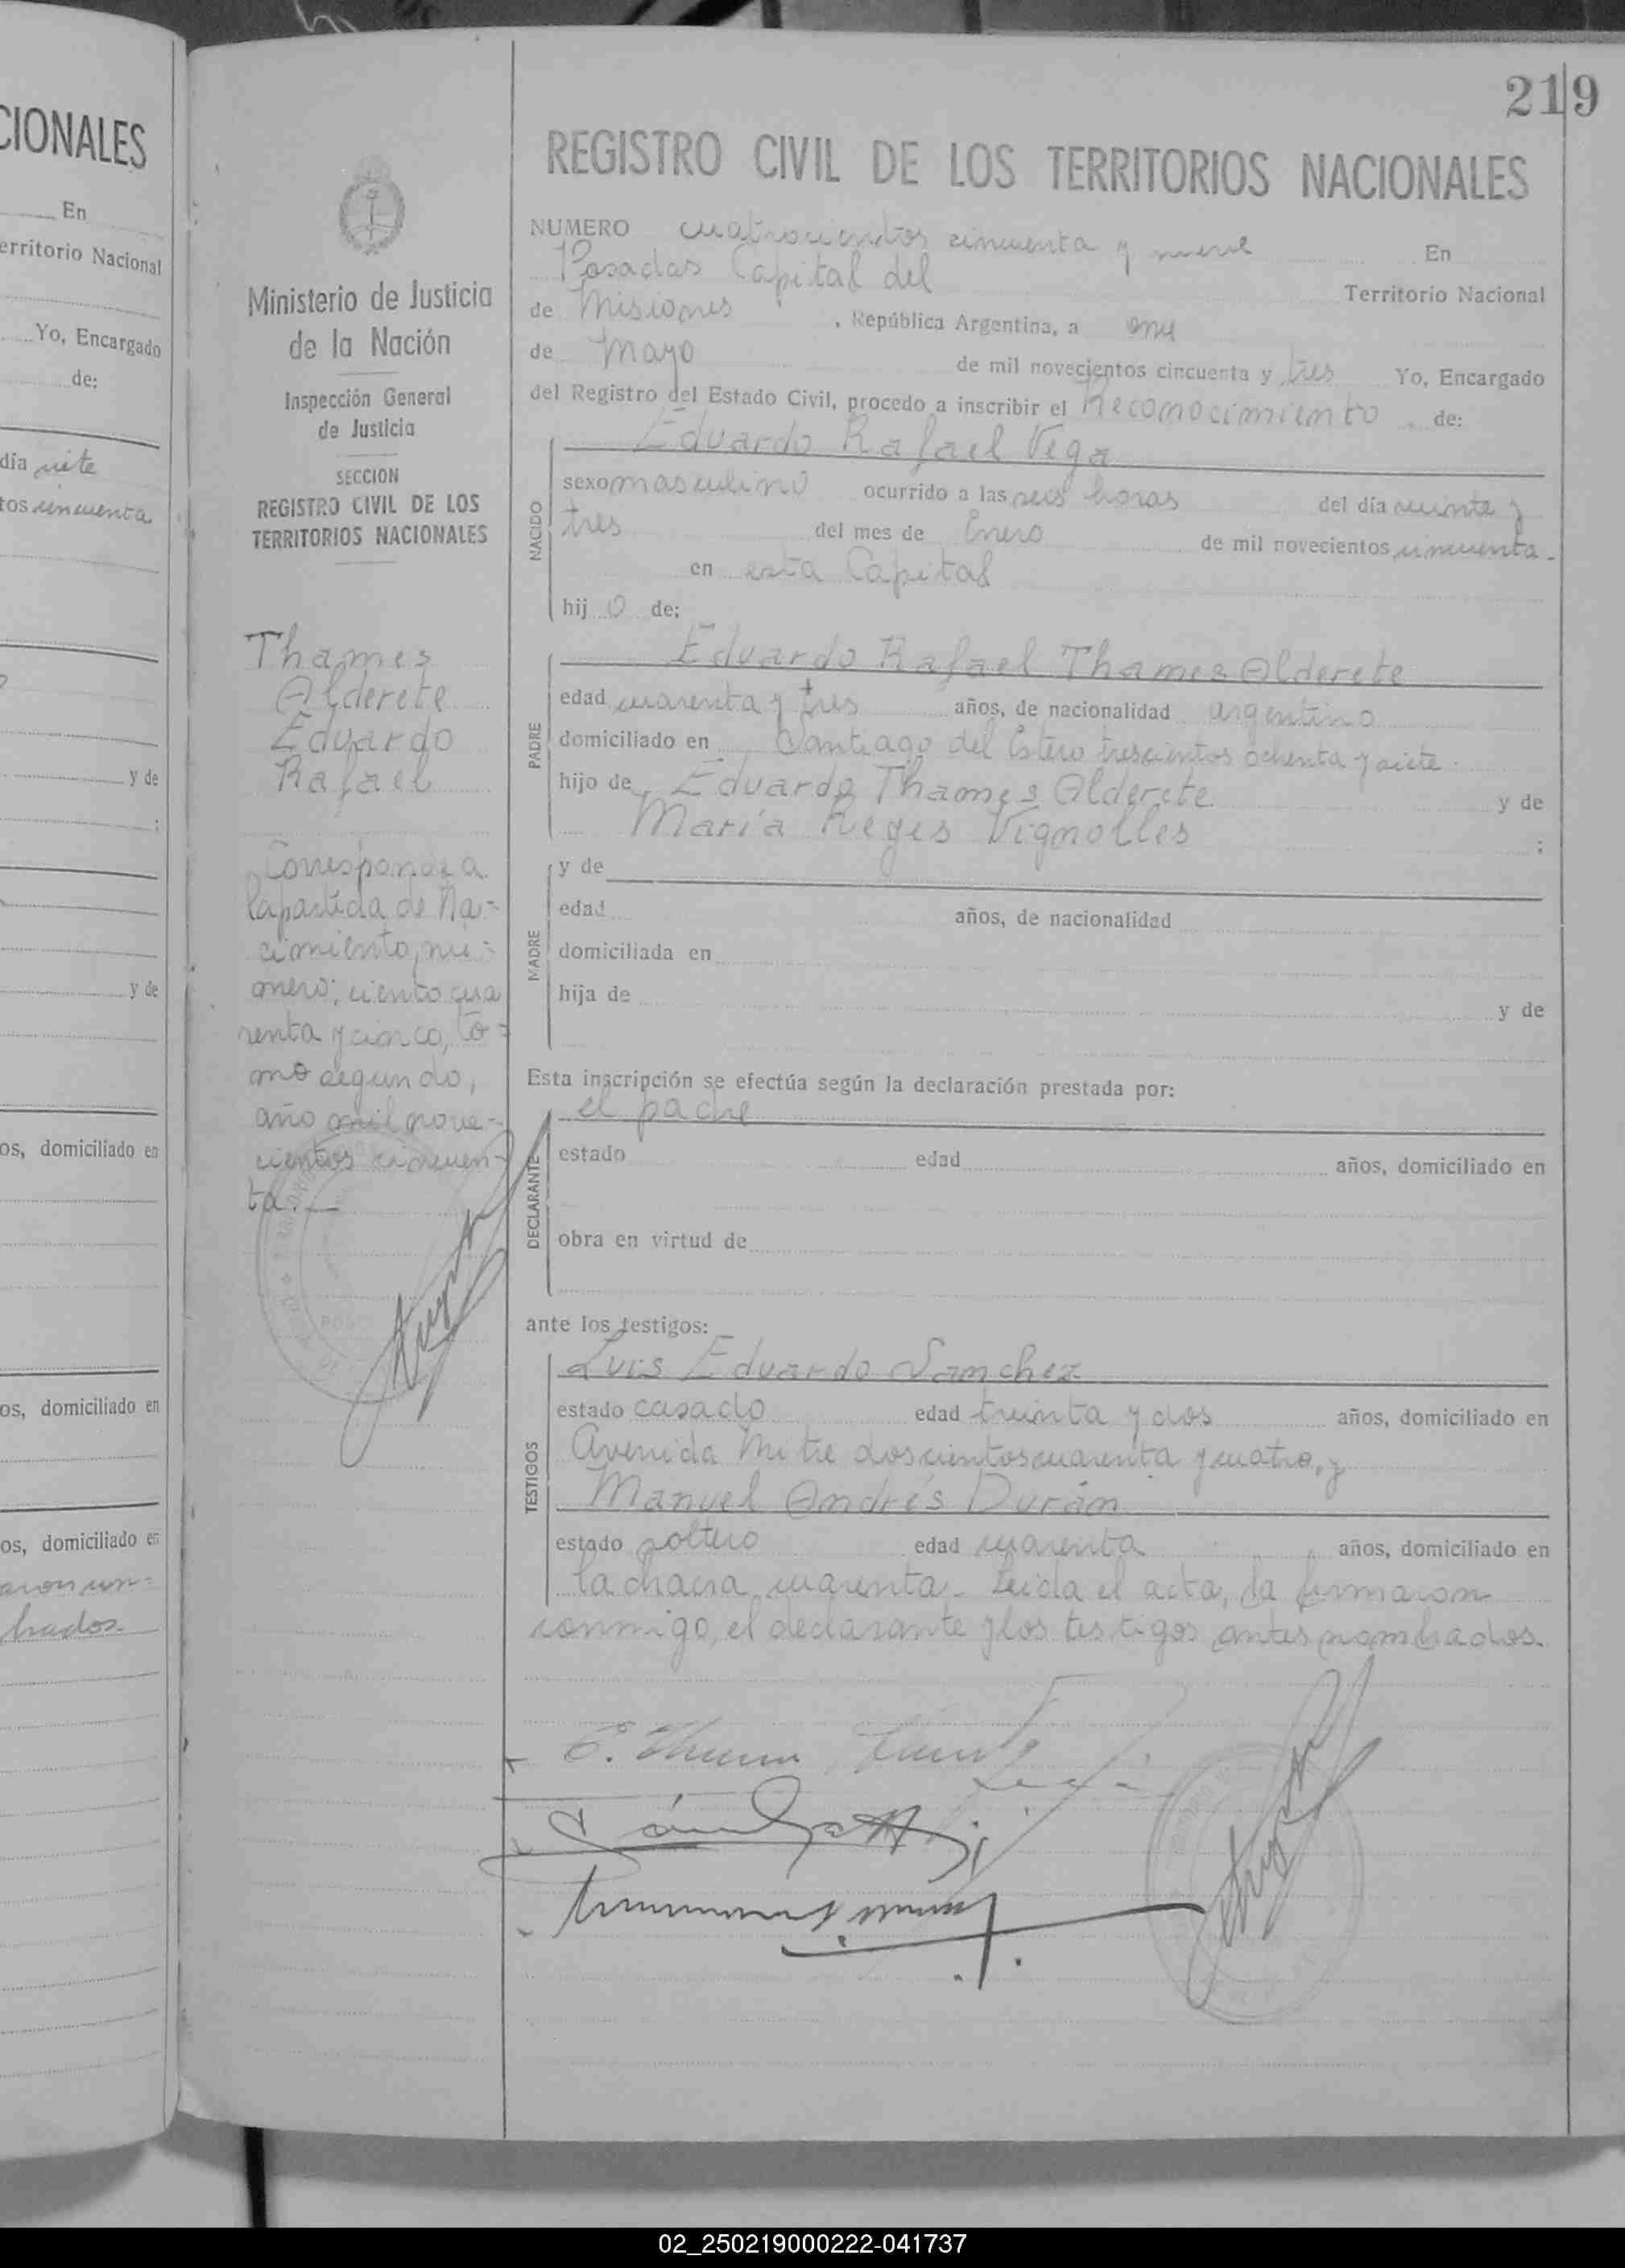 CIONALES
En
erritorio Nacional
Yo, Encargado
de:
día siete
tos cincuenta
y de
;
y de
os, domiciliado en
os, domiciliado en
os, domiciliado en
brados
219
Ministerio de Justicia
de la Nación
Inspección General
de Justicia
SECCION
REGISTRO CIVIL DE LOS
TERRITORIOS NACIONALES
Thames
Alderete
Eduardo
Rafael
Corresponde a
la partida de Na-
cimiento, nú-
mero; ciento cua
renta y cinco, to-
mo segundo,
año mil nove-
cientos cincuen-
ta.
REGISTRO CIVIL DE LOS TERRITORIOS NACIONALES
NUMERO cuatrocientos cincuenta y nueve En
Posadas Capital del Territorio Nacional
de Misiones, República Argentina, a once
de Mayo de mil novecientos cincuenta y tres Yo, Encargado
del Registro del Estado Civil, procedo a inscribir el Reconocimiento de:
NACIDO
Eduardo Rafael Vega
sexo masculino ocurrido a las seis horas del día veinte y
tres del mes de Enero de mil novecientos cincuenta-
en esta Capital
hij o de:
PADRE
Eduardo Rafael Thames Alderete
edad cuarenta y tres años, de nacionalidad argentino
domiciliado en Santiago del Estero trescientos ochenta y siete.
hijo de Eduardo Thames Alderete y de
María Reyes Vignolles ;
MADRE
y de
edad años, de nacionalidad
domiciliada en
hija de y de
Esta inscripción se efectúa según la declaración prestada por:
DECLARANTE
el padre
estado edad años, domiciliado en
obra en virtud de
ante los testigos:
TESTIGOS
Luis Eduardo Sanchez
estado casado edad treinta y dos años, domiciliado en
Avenida Mitre doscientos cuarenta y cuatro, y
Manuel Andrés Durán
estado soltero edad cuarenta años, domiciliado en
la chacra cuarenta- Leida el acta, la firmaron
conmigo, el declarante y los testigos antes nombrados.
02_250219000222-041737